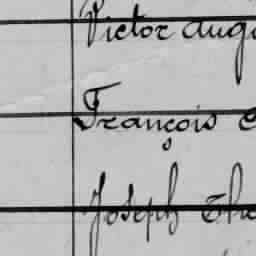 Victor Aug
François
Joseph Th